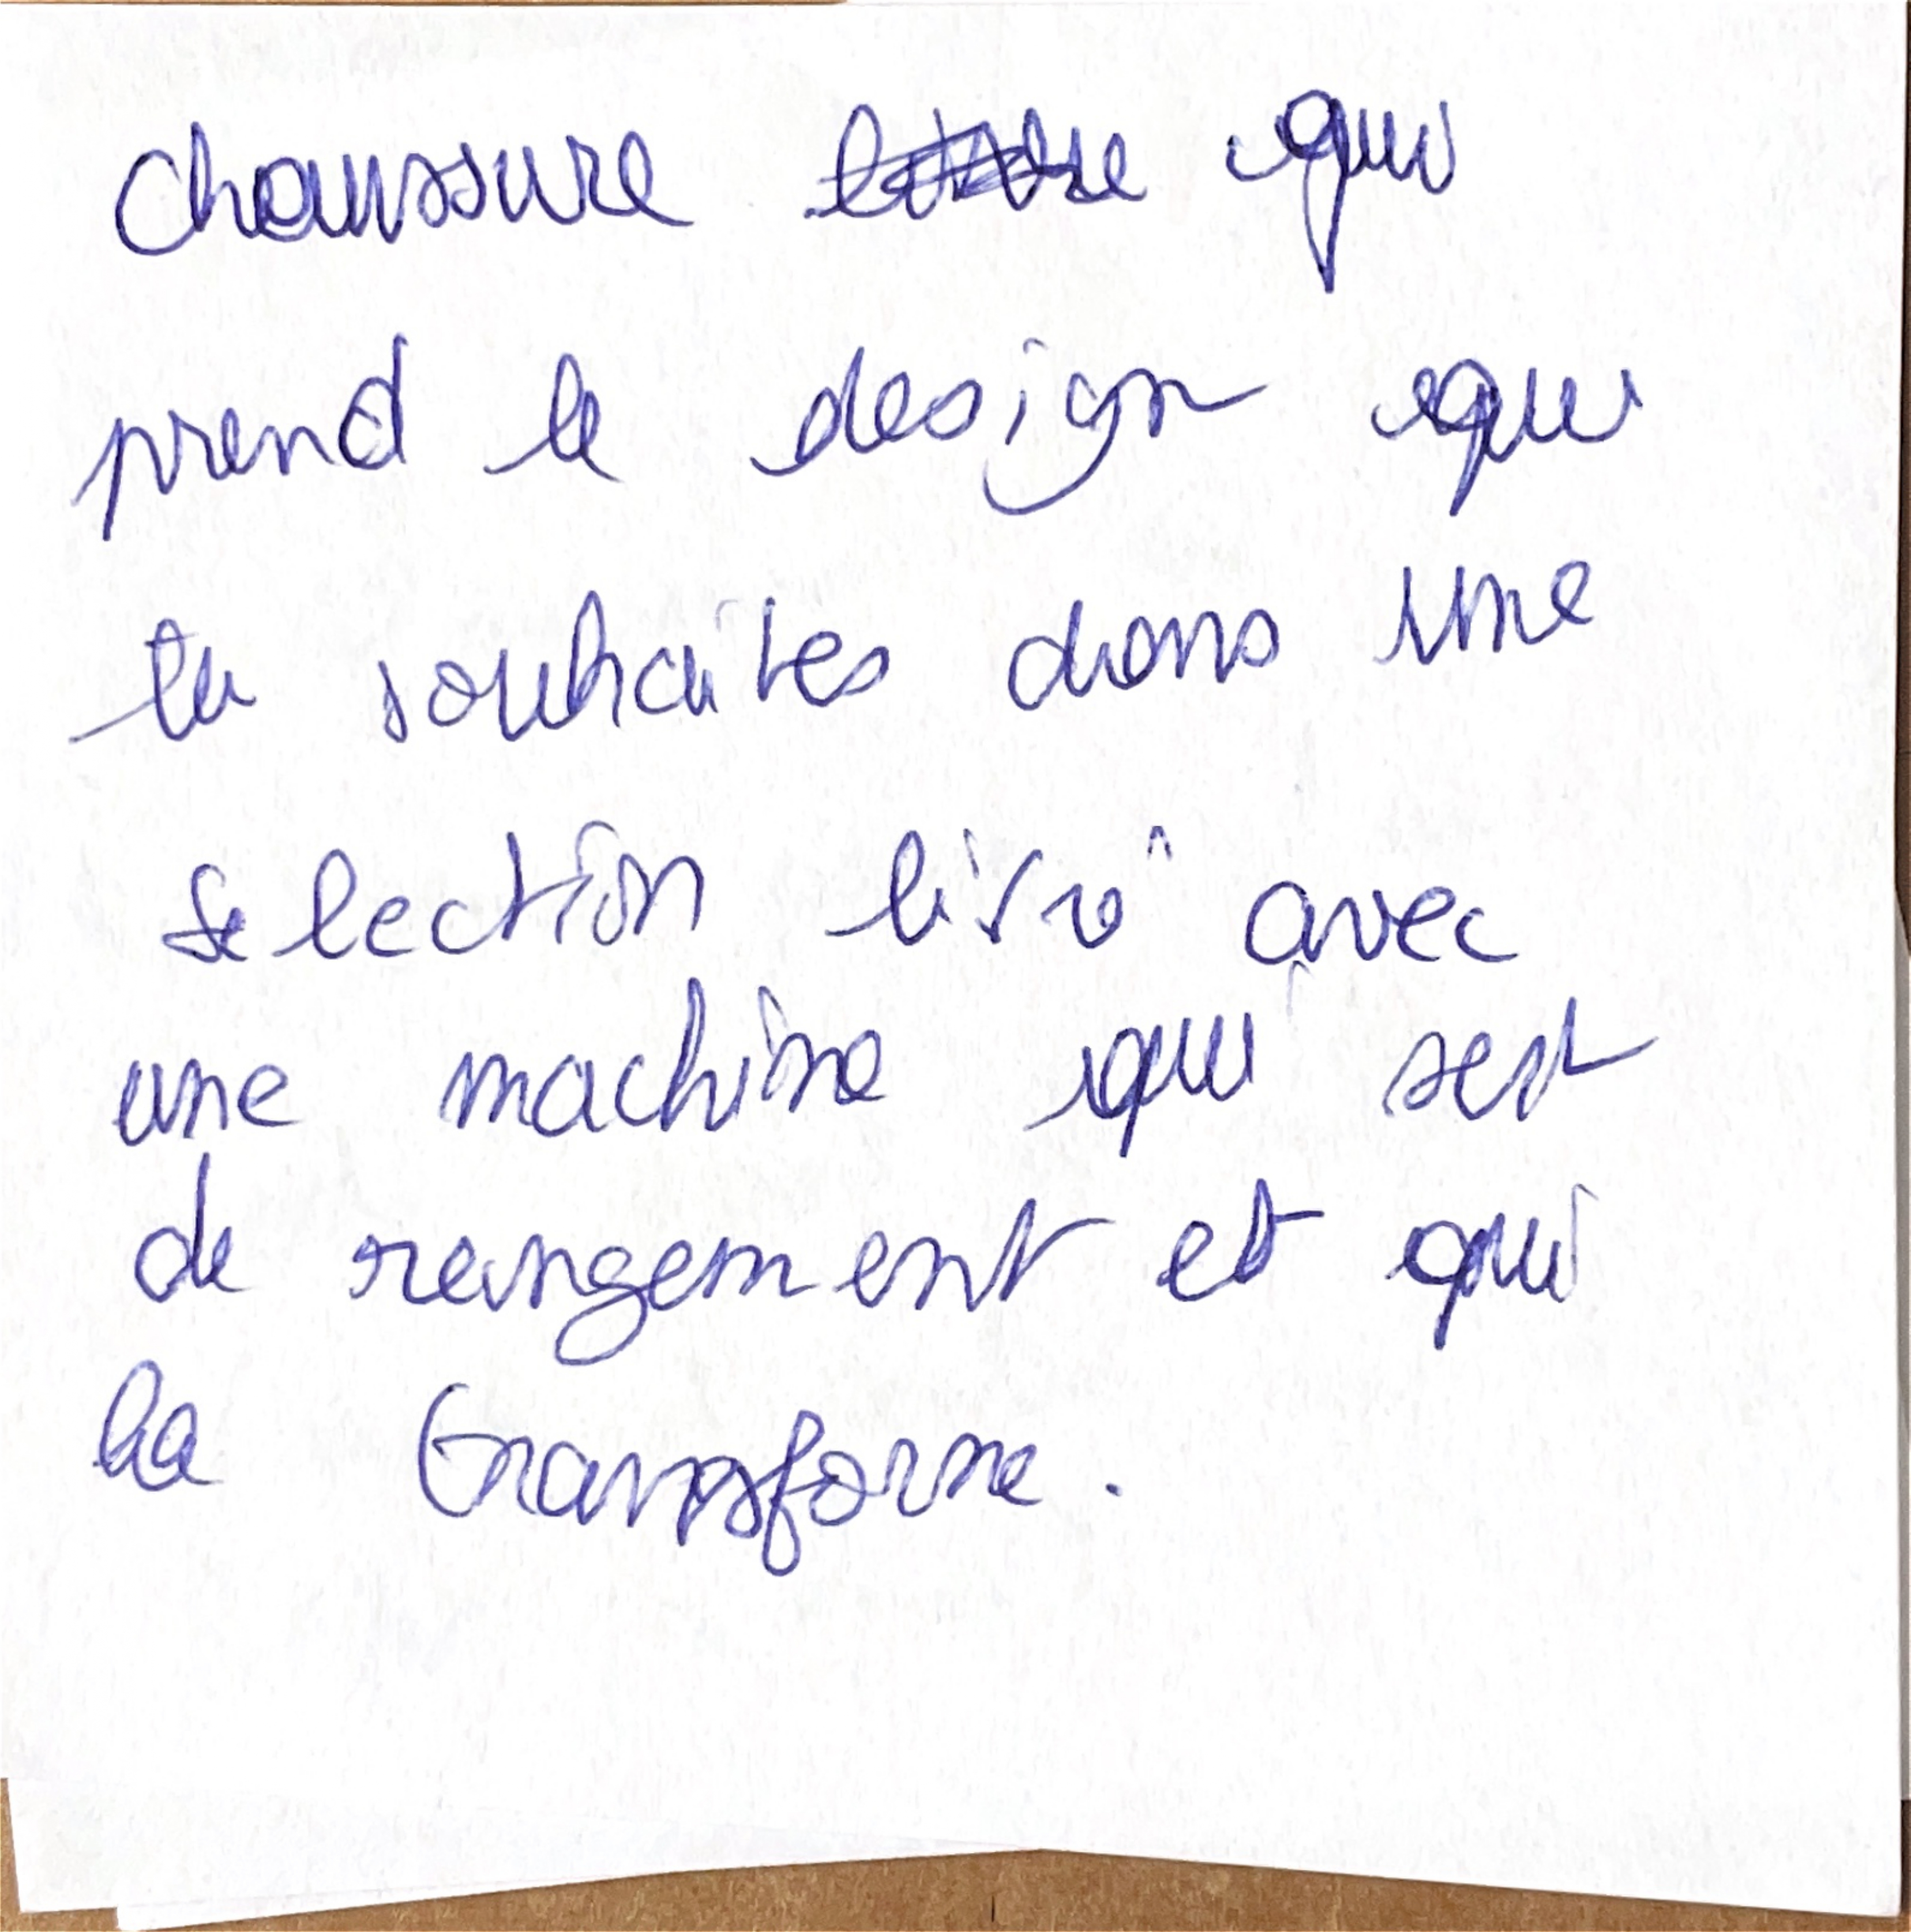 Chaussure qui
prend le design que
tu souhaites dans une
selection livré avec
une machine qui sert
de rangement et qui
la transforme.